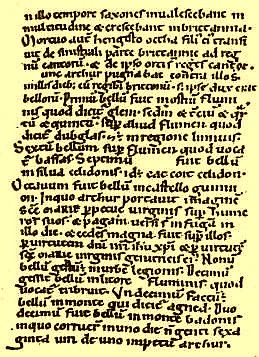 n illo tempore saxones inualescebant in
multitudine & crescebant in brittannia.
Mortuo aut̄ hengisto octha fili' ei' transi
uit de sinistrali parte brittannię ad reg
nū cantorū. & de ipso orti s̄ reges cantor̄.
Tunc arthur pugnabat contra illos.
in illis dieb; cū regib; brittonū. s; ipse dux erat
bellorū. Primū bellū fuit in ostiū flumi
nis quod dicit̄ glein. secdm̄ & t̄ciū & qr̄
tū & quintū. sup̄ aliud flumen. quod
dicit̄ dubglas. & ē in regione linnuis
Sextū bellum sup̄ flumen quod uoca
t̄ bassas. Septimū fuit bellū
in silua celidonis. id ē cat coit celidon.
Octauum fuit bellū in castello guinni
on. In quo arthur portauit imaginē
scē mariē p̄petuę uirginis sup̄ hume
ros suos. & pagani uersi s̄ in fuga in
illo die. & cedes magna fuit sup̄ illos.
p̄ uirtutem dn̄i nr̄i ihū xp̄i & p̄ uirtutē
scē mariē uirginis genitricis ei'. Nonū
bellū gestū ē in urbe legionis. Decimū
gessit bellū in litore fluminis quod
uocat̄ tribruit. Undecimū factū ē
bellū in monte qui dicit̄ agned. Duo
decimū fuit bellū in monte badonis
in quo corruer̄ in uno die ngenti sexa
ginta uiri de uno impetu arthur.